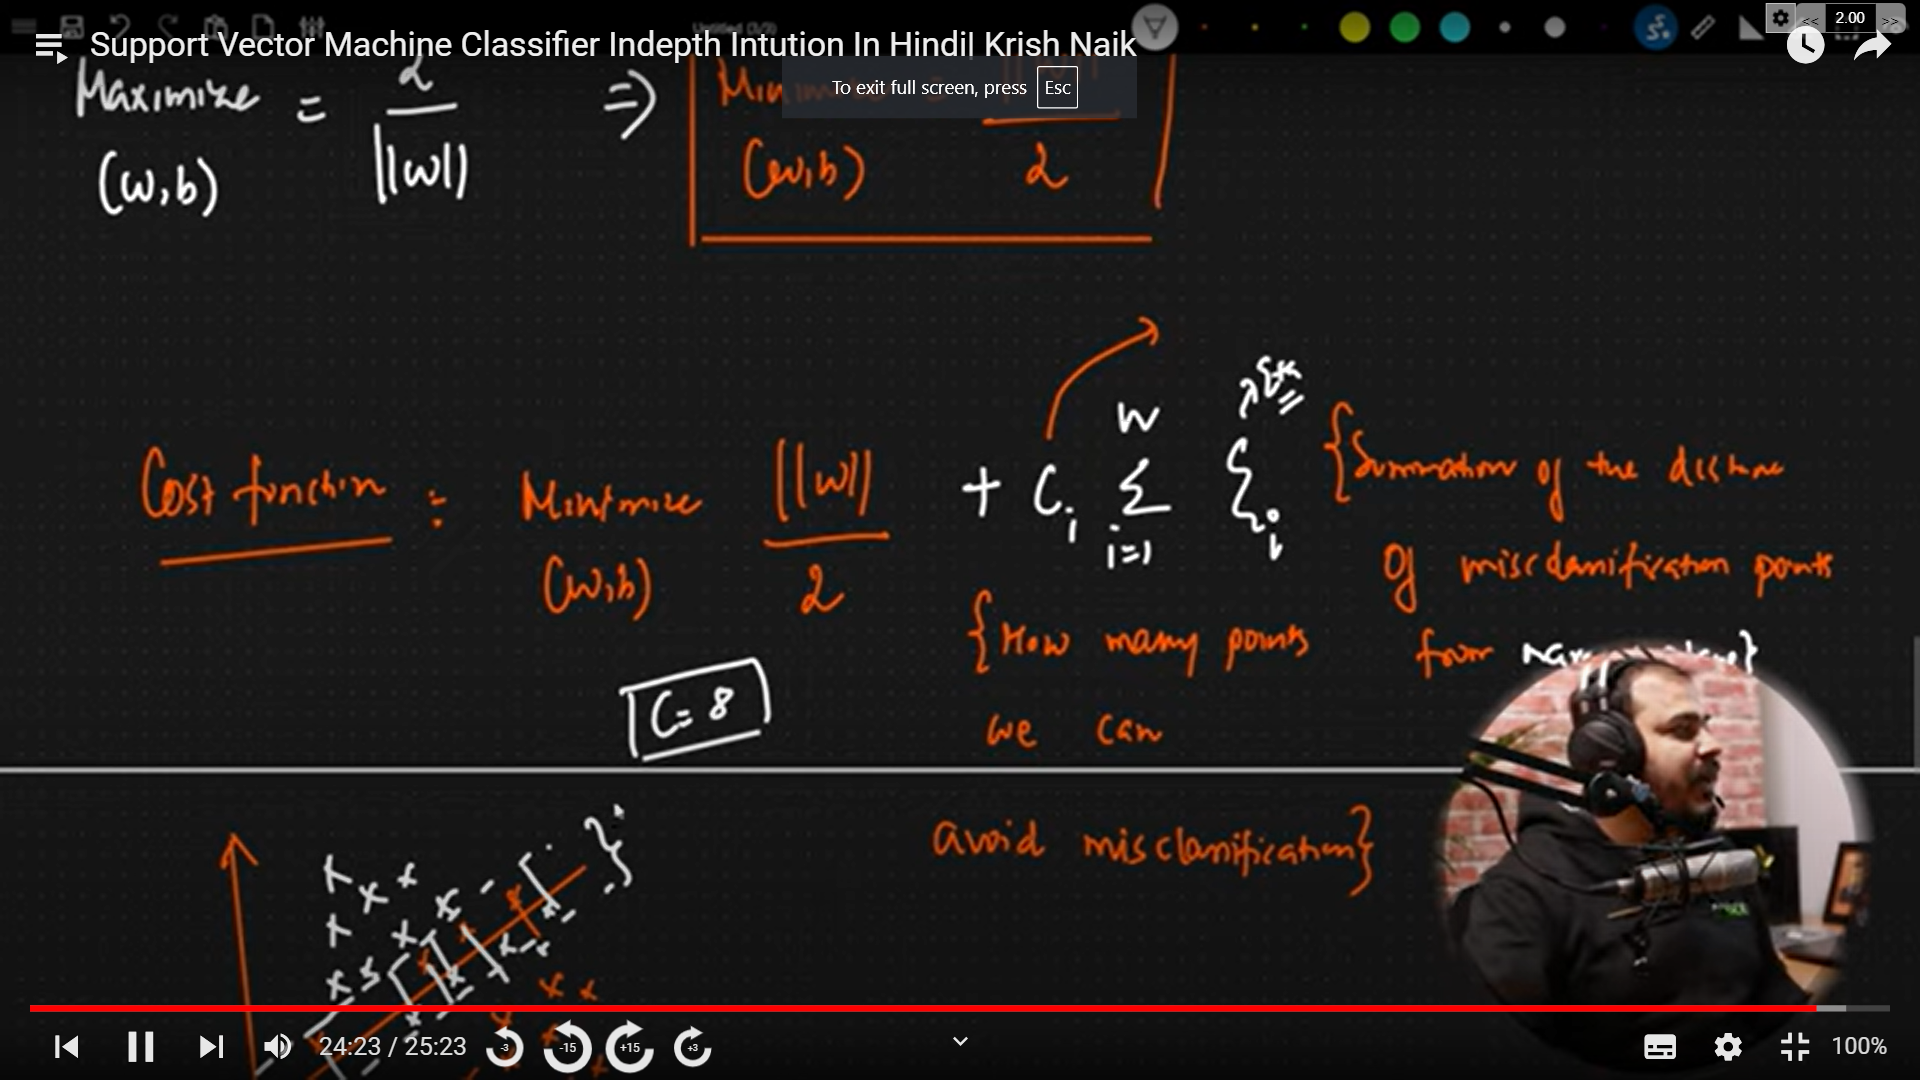 Untitled (3/3)
<< 2.00 >>
Support Vector Machine Classifier Indepth Intution In Hindi| Krish Naik
To exit full screen, press Esc
Maximize = 2 => 
(w,b) ||w|| (w,b) 2
W
Cost function : Minimize ||w|| + Ci Σ ξi {Summation of the distance
i=1
(w,b) 2 of misclassification points
{How many points from
C= 8 we can
avoid misclassification}
24:23 / 25:23 -3 -15 +15 +3 100%